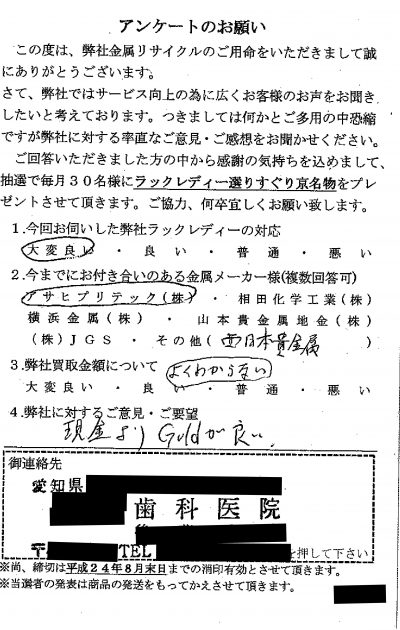 アンケートのお願い
この度は、弊社金属リサイクルのご用命をいただきまして誠
にありがとうございます。
さて、弊社ではサービス向上の為に広くお客様のお声をお聞き
したいと考えております。つきましては何かとご多用の中恐縮
ですが弊社に対する率直なご意見・ご感想をお聞かせください。
ご回答いただきました方の中から感謝の気持ちを込めまして、
抽選で毎月30名様にラックレディー選りすぐり京名物をプレ
ゼントさせて頂きます。ご協力、何卒宜しくお願い致します。
1.今回お伺いした弊社ラックレディーの対応
大変良い ・ 良い ・ 普通 ・ 悪い
2.今までにお付き合いのある金属メーカー様(複数回答可)
アサヒプリテック(株) ・ 相田化学工業(株)
横浜金属(株) ・ 山本貴金属地金(株)
(株)JGS ・ その他(西日本貴金属)
3.弊社買取金額について よくわからない
大変良い ・ 良い ・ 普通 ・ 悪い
4.弊社に対するご意見・ご要望
現金より Goldが良い。
御連絡先
愛知県
歯科医院
〒 TEL を押して下さい
※尚、締切は平成24年8月末日までの消印有効とさせて頂きます。
※当選者の発表は商品の発送をもってかえさせて頂きます。